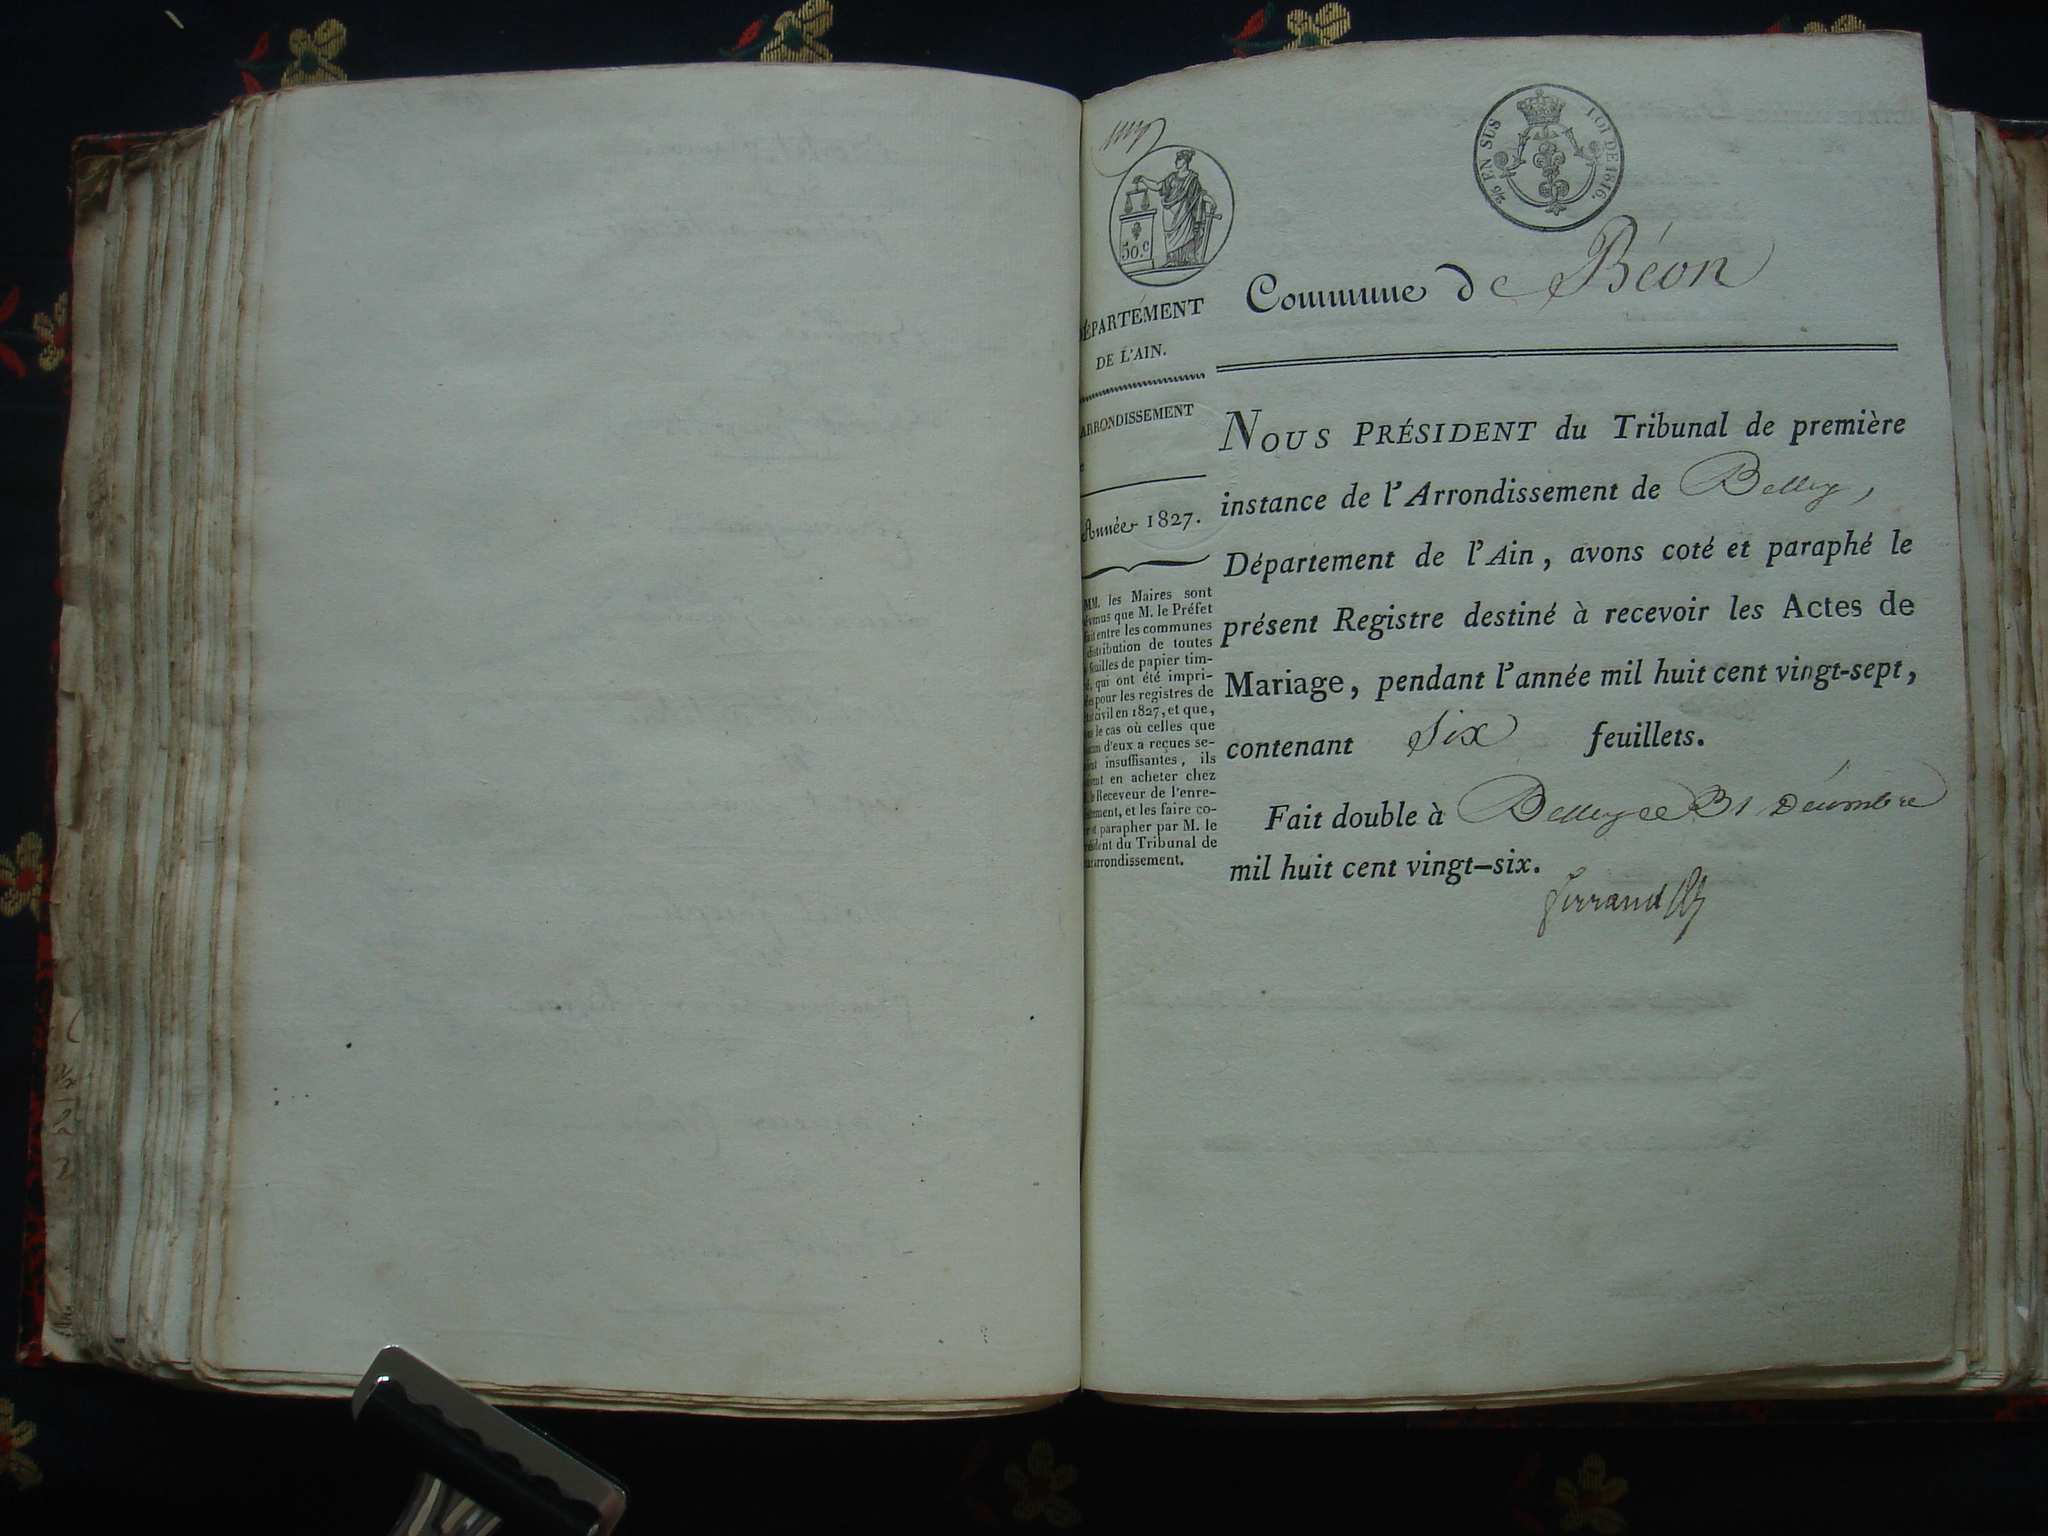 2/6 EN SUS LOI DE 1816.
50.c
Commune de Béon
DÉPARTEMENT
DE L'AIN.
ARRONDISSEMENT
Année 1827.
MM. les Maires sont
que M. le Préfet
entre les communes
distribution de toutes
feuilles de papier tim-
qui ont été impri-
pour les registres de
civil en 1827, et que,
le cas où celles que
d'eux a reçues se-
insuffisantes, ils
en acheter chez
Receveur de l'enre-
et les faire co-
et parapher par M. le
du Tribunal de
arrondissement.
NOUS PRÉSIDENT du Tribunal de première
instance de l'Arrondissement de Belley,
Département de l'Ain, avons coté et paraphé le
présent Registre destiné à recevoir les Actes de
Mariage, pendant l'année mil huit cent vingt-sept,
contenant Six feuillets.
Fait double à Belley ce 31 Décembre
mil huit cent vingt-six.